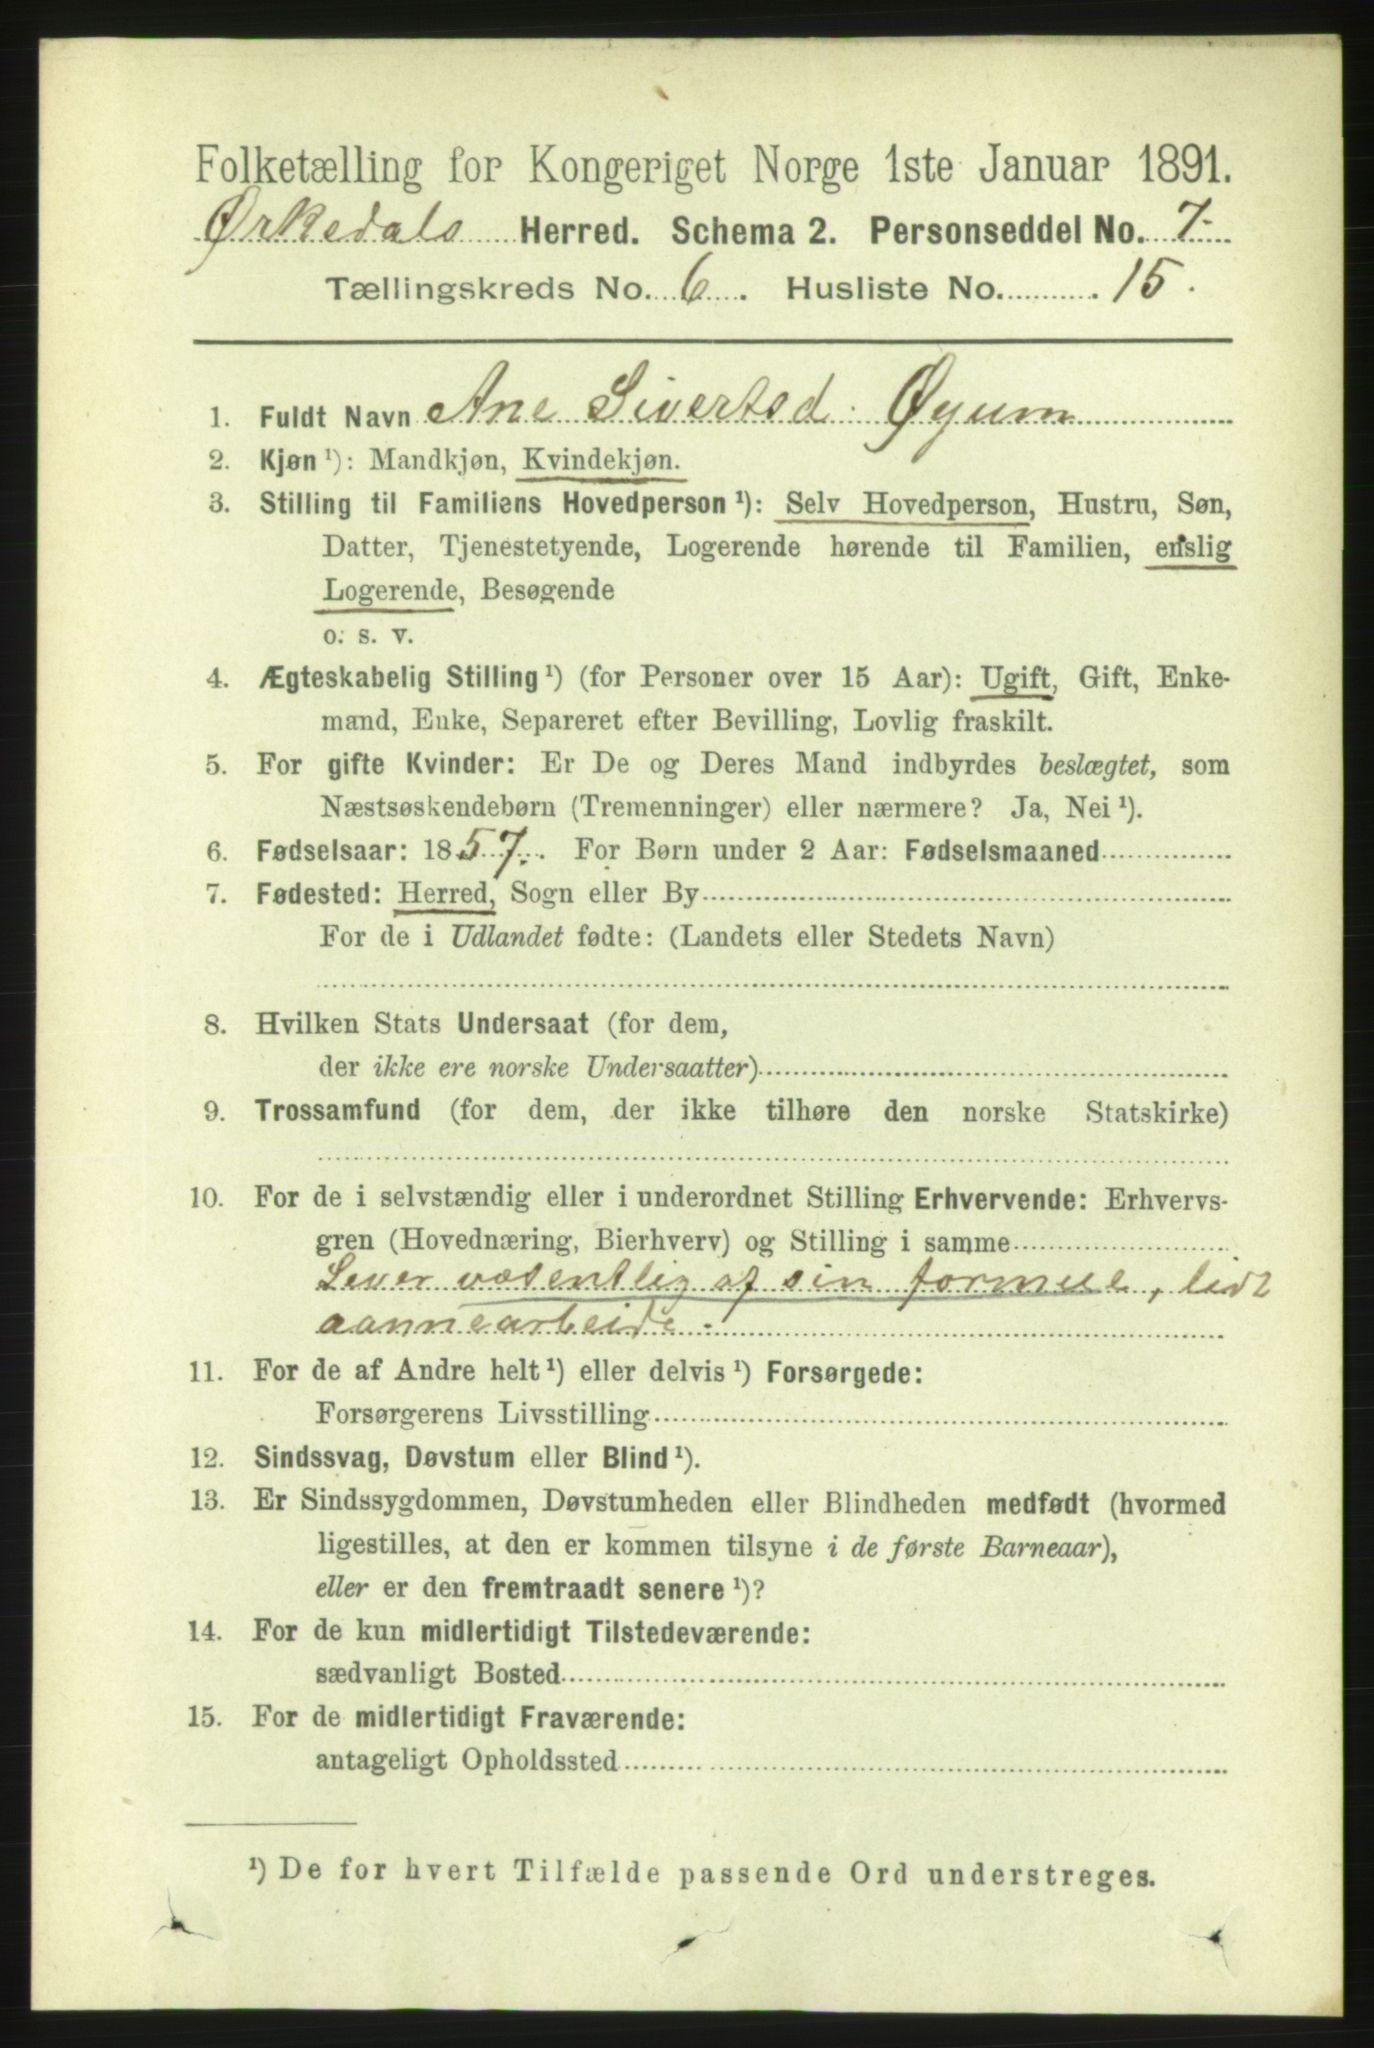 Folketælling for Kongeriget Norge 1ste Januar 1891.
Ørkedals Herred. Schema 2. Personseddel No. 7
Tællingskreds No. 6. Husliste No. 15.
1. Fuldt Navn Ane Sivertsd: Øyum
2. Kjøn ¹): Mandkjøn, Kvindekjøn.
3. Stilling til Familiens Hovedperson ¹): Selv Hovedperson, Hustru, Søn,
Datter, Tjenestetyende, Logerende hørende til Familien, enslig
Logerende, Besøgende
o. s. v.
4. Ægteskabelig Stilling ¹) (for Personer over 15 Aar): Ugift, Gift, Enke-
mand, Enke, Separeret efter Bevilling, Lovlig fraskilt.
5. For gifte Kvinder: Er De og Deres Mand indbyrdes beslægtet, som
Næstsøskendebørn (Tremenninger) eller nærmere? Ja, Nei ¹).
6. Fødselsaar: 1857. For Børn under 2 Aar: Fødselsmaaned
7. Fødested: Herred, Sogn eller By
For de i Udlandet fødte: (Landets eller Stedets Navn)
8. Hvilken Stats Undersaat (for dem,
der ikke ere norske Undersaatter)
9. Trossamfund (for dem, der ikke tilhøre den norske Statskirke)
10. For de i selvstændig eller i underordnet Stilling Erhvervende: Erhvervs-
gren (Hovednæring, Bierhverv) og Stilling i samme
Lever væsentlig af sin formue, lidt
aannearbeide.
11. For de af Andre helt ¹) eller delvis ¹) Forsørgede:
Forsørgerens Livsstilling
12. Sindssvag, Døvstum eller Blind ¹).
13. Er Sindssygdommen, Døvstumheden eller Blindheden medfødt (hvormed
ligestilles, at den er kommen tilsyne i de første Barneaar),
eller er den fremtraadt senere ¹)?
14. For de kun midlertidigt Tilstedeværende:
sædvanligt Bosted
15. For de midlertidigt Fraværende:
antageligt Opholdssted
¹) De for hvert Tilfælde passende Ord understreges.